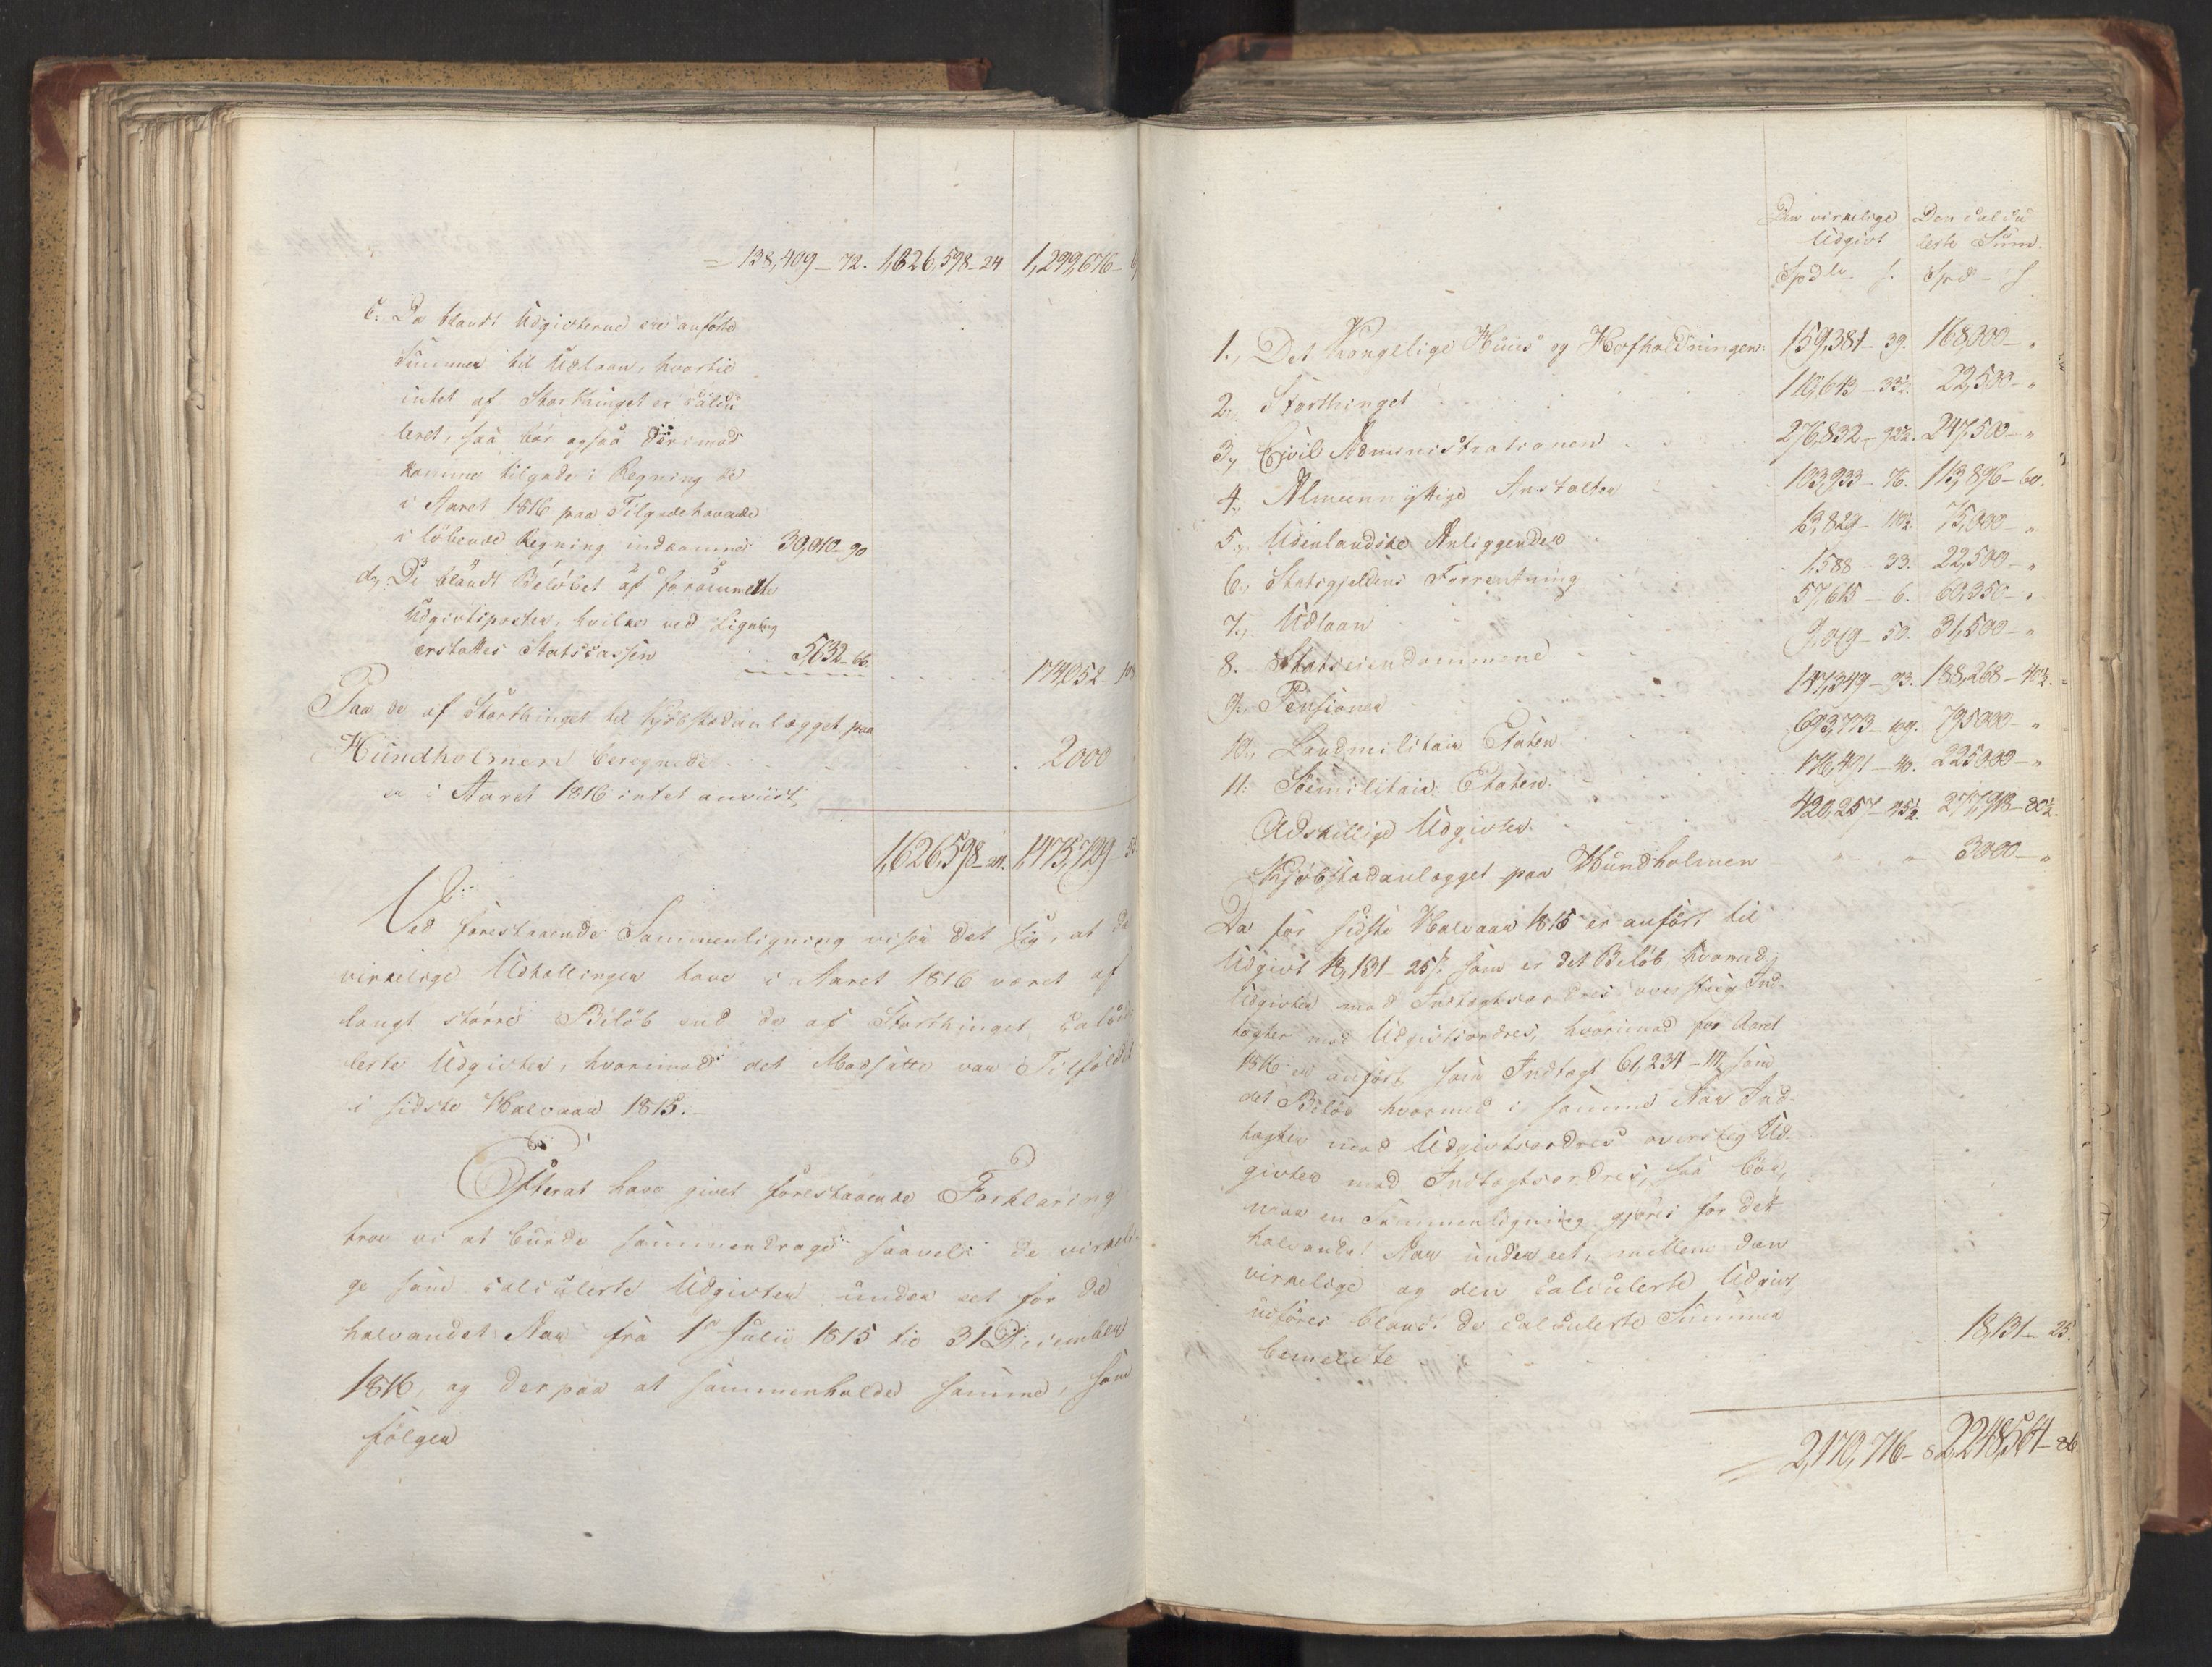 = 138,409 - 72. 1,626,598 - 24 1,299,676 -
c. Da blandt Udgivterne ere anførte
Summer til Udlaan, hvortil
intet af Storthinget er calcu
leret, saa bør ogsaa derimod
komme tilgode i Regning de
i Aaret 1816 paa Tilgodehavende
i løbende Regning indkomne 30,010 - 90
d, De blandt Beløbet af forommeldte
Udgivtsposter, hvilke ved Ligning
erstattes Statskassen 5632 - 66.
174,052 -
Paa de af Storthinget til Kjøbstadanlægget paa
Hundholmen beregnede 2000
er i Aaret 1816 intet anviist,
1,626,598 - 24. 1,475,729 -
Ved forestaaende Sammenligning viser det sig, at de
virkelige Udtællinger have i Aaret 1816 været af
langt større Beløb end de af Storthinget calcu
lerte Udgivter, hvorimod det Modsatte var Tilfældet
i sidste Halvaar 1815.
Efterat have givet forestaaende Forklaring
troe vi at burde sammendrage saavel de virkeli-
ge som calculerte Udgivter under eet for det
halvandet Aar fra 1ste Julii 1815 til 31 December
1816, og derpaa at sammenholde samme, som
følger
Den virkelige Den calcu
Udgivt lerte Sum.
Spdlr. s. Spd - s
1., Det Kongelige Huus og Hofholdningen. 159,381 - 39. 168,000 - "
2., Storthinget 110,643 - 33½. 22,500 - "
3., Civil Administrationen 276,832 - 92½. 247,500 - "
4., Almeennyttige Anstalter 103,933 - 76. 113,896 - 60.
5., Udenlandske Anliggender 13,829 - 110½. 75,000 - "
6., Statsgjeldens Forrentning 1588 - 33. 22,500 - "
7., Udlaan 57,615 - 6. 60,350 - "
8. Statseiendommene 9,019 - 50. 31,500 - "
9. Pensioner 147,349 - 93. 188,268 - 40½.
10., Landmilitair Etaten 693,773 - 109. 795000 - "
11. Søemilitair Etaten. 176,491 - 40. 225000 - "
Adskillige Udgivter. 420,257 - 45½. 277,918 - 80½.
Kjøbstadanlægget paa Hundholmen " " 3000 - "
Da for sidste Halvaar 1815 er anført til
Udgivt 18,131 - 25 s. som er det Beløb hvormed
Udgivter med Indtægtsordres oversteg Ind-
tægter med Udgivtsordres, hvorimod for Aaret
1816 er anført som Indtægt 61,234 - 111, som
det Beløb hvormed i samme Aar Ind-
tægter med Udgivtsordres oversteg Ud-
givter med Indtægtsordres, saa bør,
naar en Sammenligning gjøres for det
halvandet Aar under eet, mellem den
virkelige og den calculerte Udgivt,
udføres blandt de calculerte Summer
bemeldte 18,131 - 25.
= 2,170,716 - 8 2,248,564 - 86.